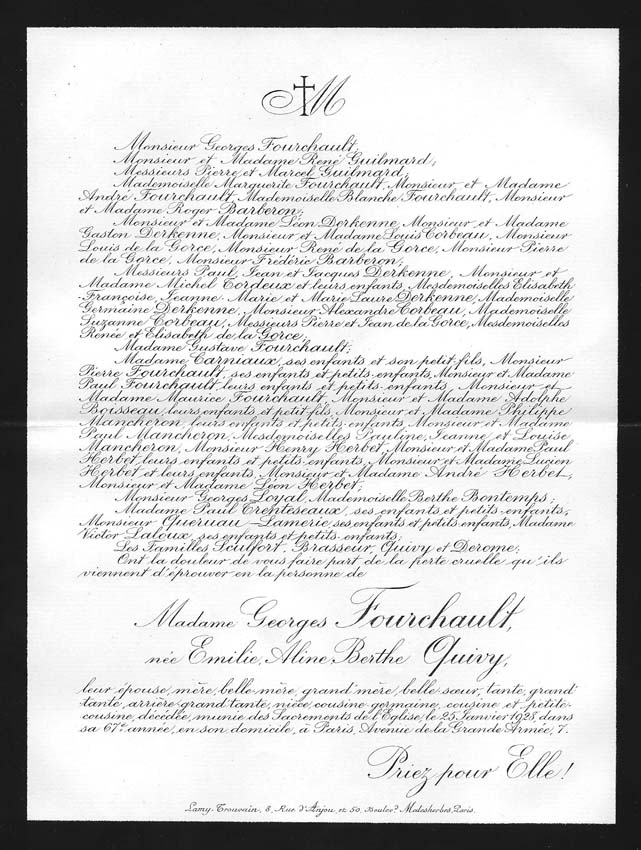 M
Monsieur Georges Fourchault;
Monsieur et Madame René Guilmard;
Messieurs Pierre et Marcel Guilmard;
Mademoiselle Marguerite Fourchault, Monsieur et Madame
André Fourchault, Mademoiselle Blanche Fourchault, Monsieur
et Madame Roger Barberon;
Monsieur et Madame Léon Derkenne, Monsieur et Madame
Gaston Derkenne, Monsieur et Madame Louis Corbeau, Monsieur
Louis de la Gorce, Monsieur René de la Gorce, Monsieur Pierre
de la Gorce, Monsieur Frédéric Barberon;
Messieurs Paul, Jean et Jacques Derkenne, Monsieur et
Madame Michel Tordeux et leurs enfants, Mesdemoiselles Elisabeth
Françoise, Jeanne-Marie et Marie Laure Derkenne, Mademoiselle
Germaine Derkenne, Monsieur Alexandre Corbeau, Mademoiselle
Suzanne Corbeau, Messieurs Pierre et Jean de la Gorce, Mesdemoiselles
Renée et Elisabeth de la Gorce;
Madame Gustave Fourchault;
Madame Carniaux, ses enfants et son petit fils, Monsieur
Pierre Fourchault, ses enfants et petits enfants, Monsieur et Madame
Paul Fourchault, leurs enfants et petits enfants, Monsieur et
Madame Maurice Fourchault, Monsieur et Madame Adolphe
Bousseau, leurs enfants et petit fils, Monsieur et Madame Philippe
Mancheron, leurs enfants et petits enfants, Monsieur et Madame
Paul Mancheron, Mesdemoiselles Pauline, Jeanne et Louise
Mancheron, Monsieur Henry Herbet, Monsieur et Madame Paul
Herbet, leurs enfants et petits enfants, Monsieur et Madame Lucien
Herbet et leurs enfants, Monsieur et Madame André Herbet,
Monsieur et Madame Léon Herbet;
Monsieur Georges Loyal, Mademoiselle Berthe Bontemps;
Madame Paul Trenteseaux, ses enfants et petits enfants,
Monsieur Queruau-Lamerie, ses enfants et petits enfants, Madame
Victor Laloux, ses enfants et petits enfants;
Les Familles Sculfort, Brasseur, Quivy et Derome;
Ont la douleur de vous faire part de la perte cruelle qu'ils
viennent d'éprouver en la personne de
Madame Georges Fourchault,
née Emilie, Aline, Berthe Quivy,
leur épouse, mère, belle-mère, grand'mère, belle-sœur, tante, grand'
tante, arrière-grand'tante, nièce, cousine germaine, cousine et petite-
cousine, décédée, munie des Sacrements de l'Eglise, le 25 Janvier 1928, dans
sa 67e année, en son domicile, à Paris, Avenue de la Grande Armée, 7.
Priez pour Elle!
Lamy-Trouvain, 8, Rue d'Anjou et 50, Boulevd. Malesherbes, Paris.